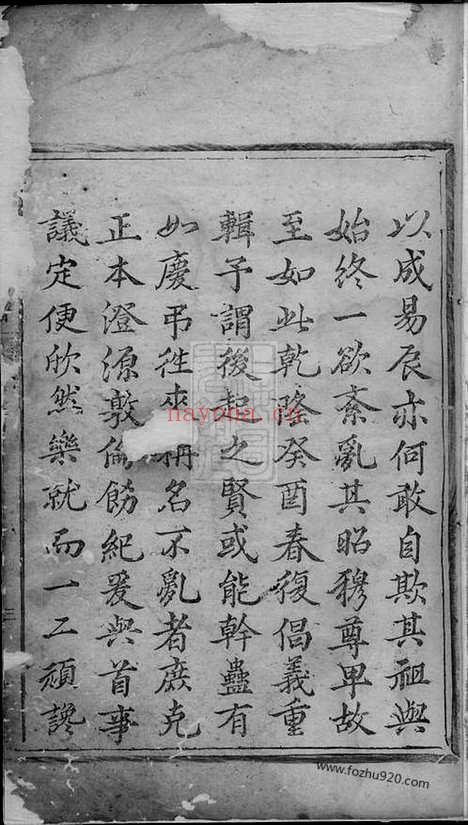 以成易辰亦何敢自欺其祖與
始終一欲紊亂其昭穆尊卑故
至如此乾隆癸酉春復倡義重
輯予謂後起之賢或能幹蠱有
如慶弔往來稱名不亂者庶克
正本澄源敦倫飭紀爰與首事
議定便欣然樂就而一二頑讒
nayona.cn
www.fozhu920.com